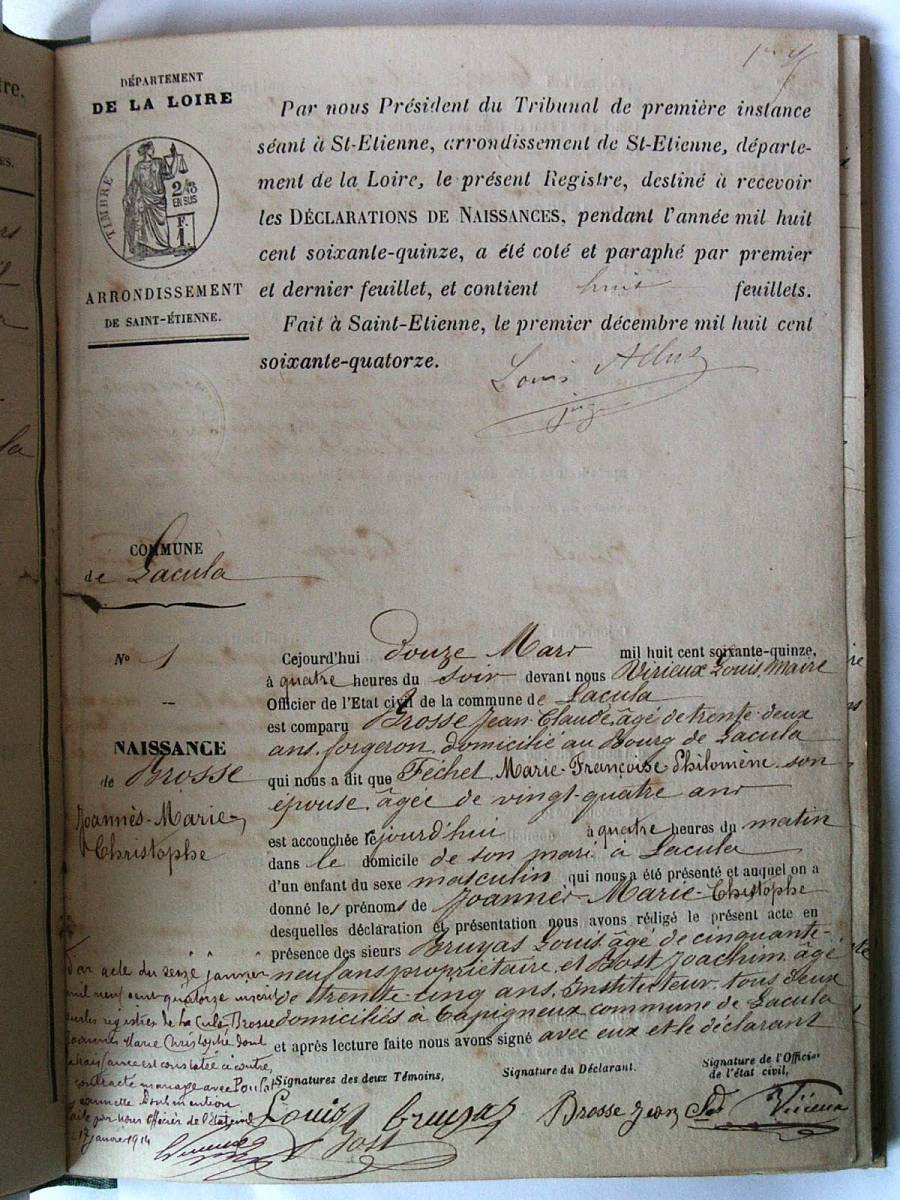 DÉPARTEMENT
DE LA LOIRE
TIMBRE
2/10
EN SUS
F.
1.
ARRONDISSEMENT
DE SAINT-ÉTIENNE.
Par nous Président du Tribunal de première instance
séant à St-Etienne, arrondissement de St-Etienne, départe-
ment de la Loire, le présent Registre, destiné à recevoir
les DÉCLARATIONS DE NAISSANCES, pendant l'année mil huit
cent soixante-quinze, a été coté et paraphé par premier
et dernier feuillet, et contient huit feuillets.
Fait à Saint-Etienne, le premier décembre mil huit cent
soixante-quatorze.
Louis
juge
COMMUNE
de Lacula
No 1
NAISSANCE
de Brosse
Joannès-Marie-
Christophe
Cejourd'hui douze Mars mil huit cent soixante-quinze,
à quatre heures du soir devant nous Virieux Louis, Maire
Officier de l'Etat civil de la commune de Lacula
est comparu Brosse Jean-Claude, âgé de trente-deux
ans, forgeron, domicilié au Bourg de Lacula
qui nous a dit que Féchet, Marie-Françoise Philomène, son
épouse, âgée de vingt-quatre ans
est accouchée cejourd'hui à quatre heures du matin
dans le domicile de son mari à Lacula
d'un enfant du sexe masculin qui nous a été présenté et auquel on a
donné les prénoms de Joannès-Marie-Christophe
desquelles déclaration et présentation nous avons rédigé le présent acte en
présence des sieurs Bruyas Louis, âgé de cinquante-
neuf ans, propriétaire, et Bost Joachim, âgé
de trente-cinq ans, Instituteur, tous deux
domiciliés à Capigneux commune de Lacula
et après lecture faite nous avons signé avec eux et le déclarant
Par acte du seize janvier
mil neuf cent quatorze inscrit
sur les registres de La Cula, Brosse
Joannès Marie Christophe dont
la naissance est constatée ci-contre,
contracte mariage avec
dont mention
faite par nous Officier de l'état civil
17 janvier 1914
Signatures des deux Témoins,
Signature du Déclarant.
Signature de l'Officier
de l'état civil,
Louis Bruyas
Bost
Brosse Jean Cde
Virieux